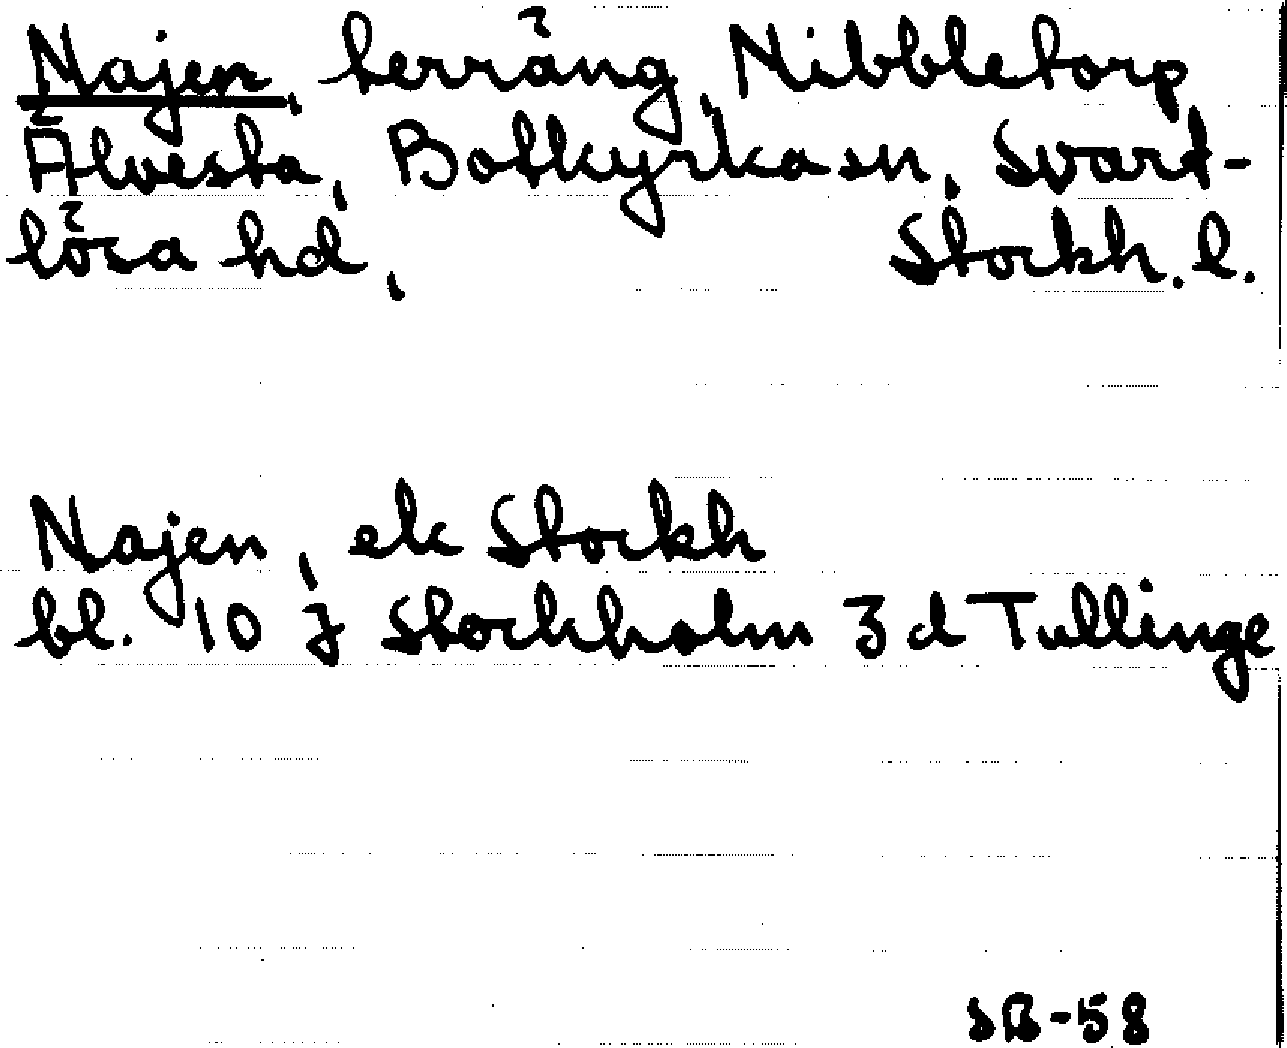 Najen, terräng, Nibbletorp
Älvesta, Botkyrka sn, Svart-
lösa hd, Stockh. l.
Najen, ek Stockh
bl. 10 J Stockholm 3 d Tullinge
SB-58